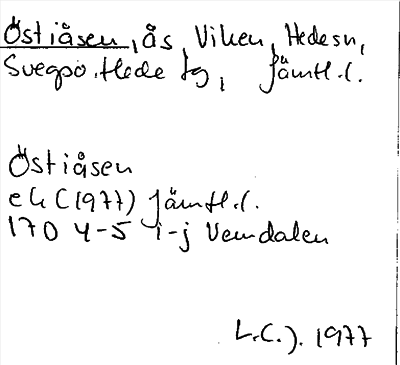 Östiåsen, ås, Viken, Hedesn,
Svegpo. Hede tg, Jämtl.l.
Östiåsen
ek (1977) Jämtl.l.
170 4-5 i-j Vemdalen
L.C.J. 1977